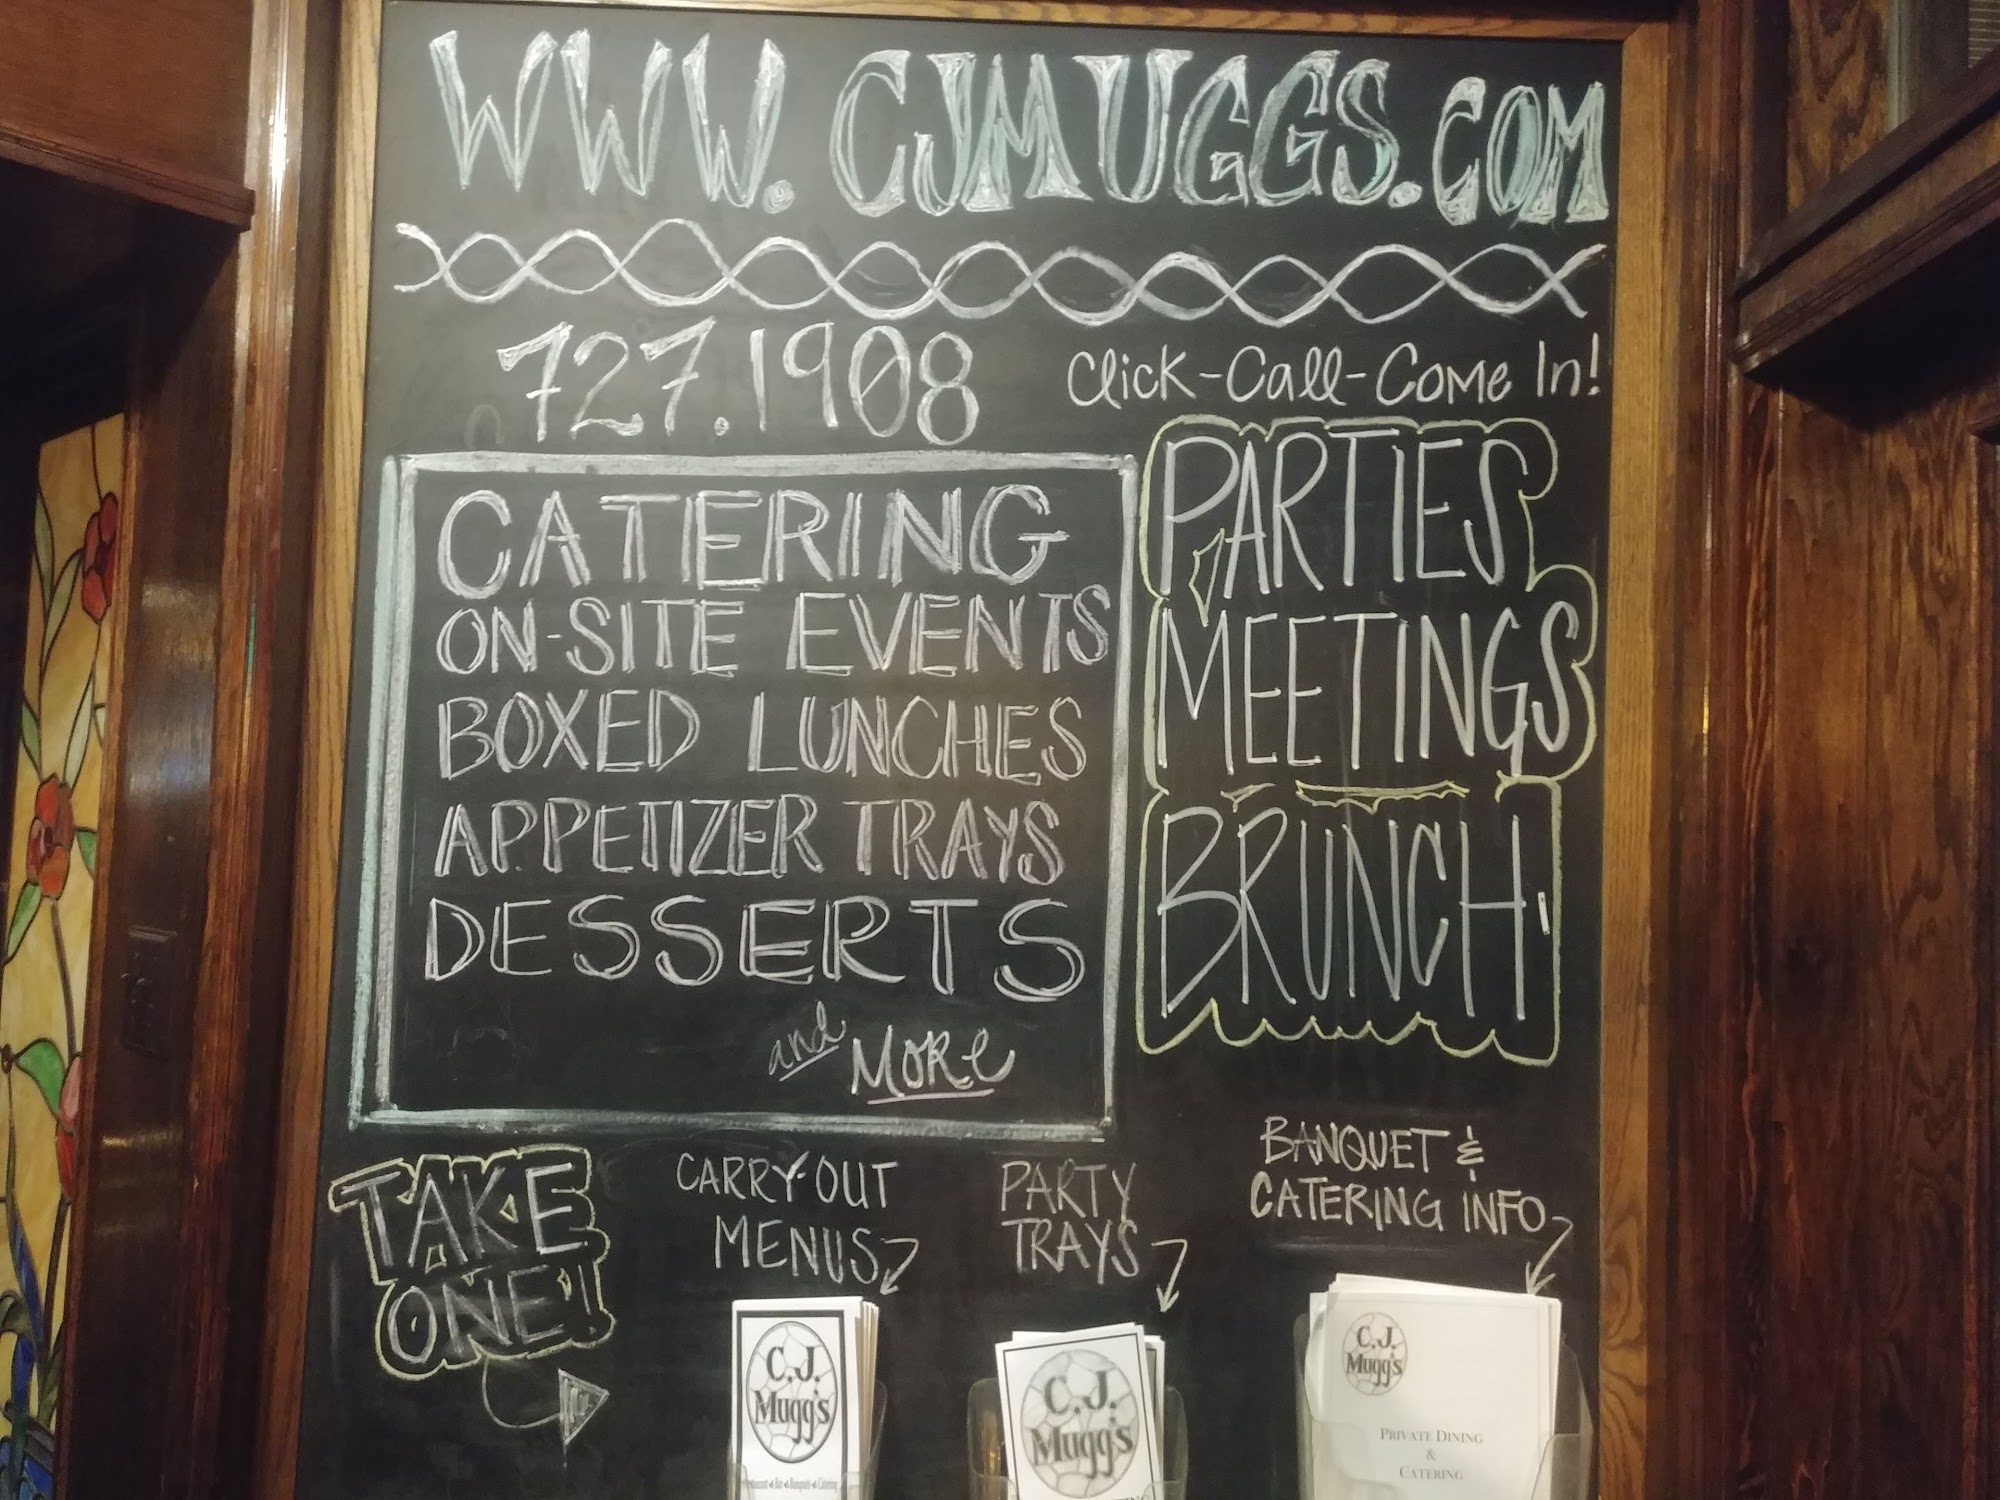 WWW.CJMUGGS.COM
727.1908
Click-Call-Come In!
CATERING
ON-SITE EVENTS
BOXED LUNCHES
APPETIZER TRAYS
DESSERTS
and MORE
PARTIES
MEETINGS
BRUNCH
TAKE
ONE!
CARRY-OUT
MENUS
PARTY
TRAYS
BANQUET &
CATERING INFO
C.J.
Mugg's
Bar Banquets Catering
C.J.
Mugg's
C.J.
Mugg's
PRIVATE DINING
&
CATERING